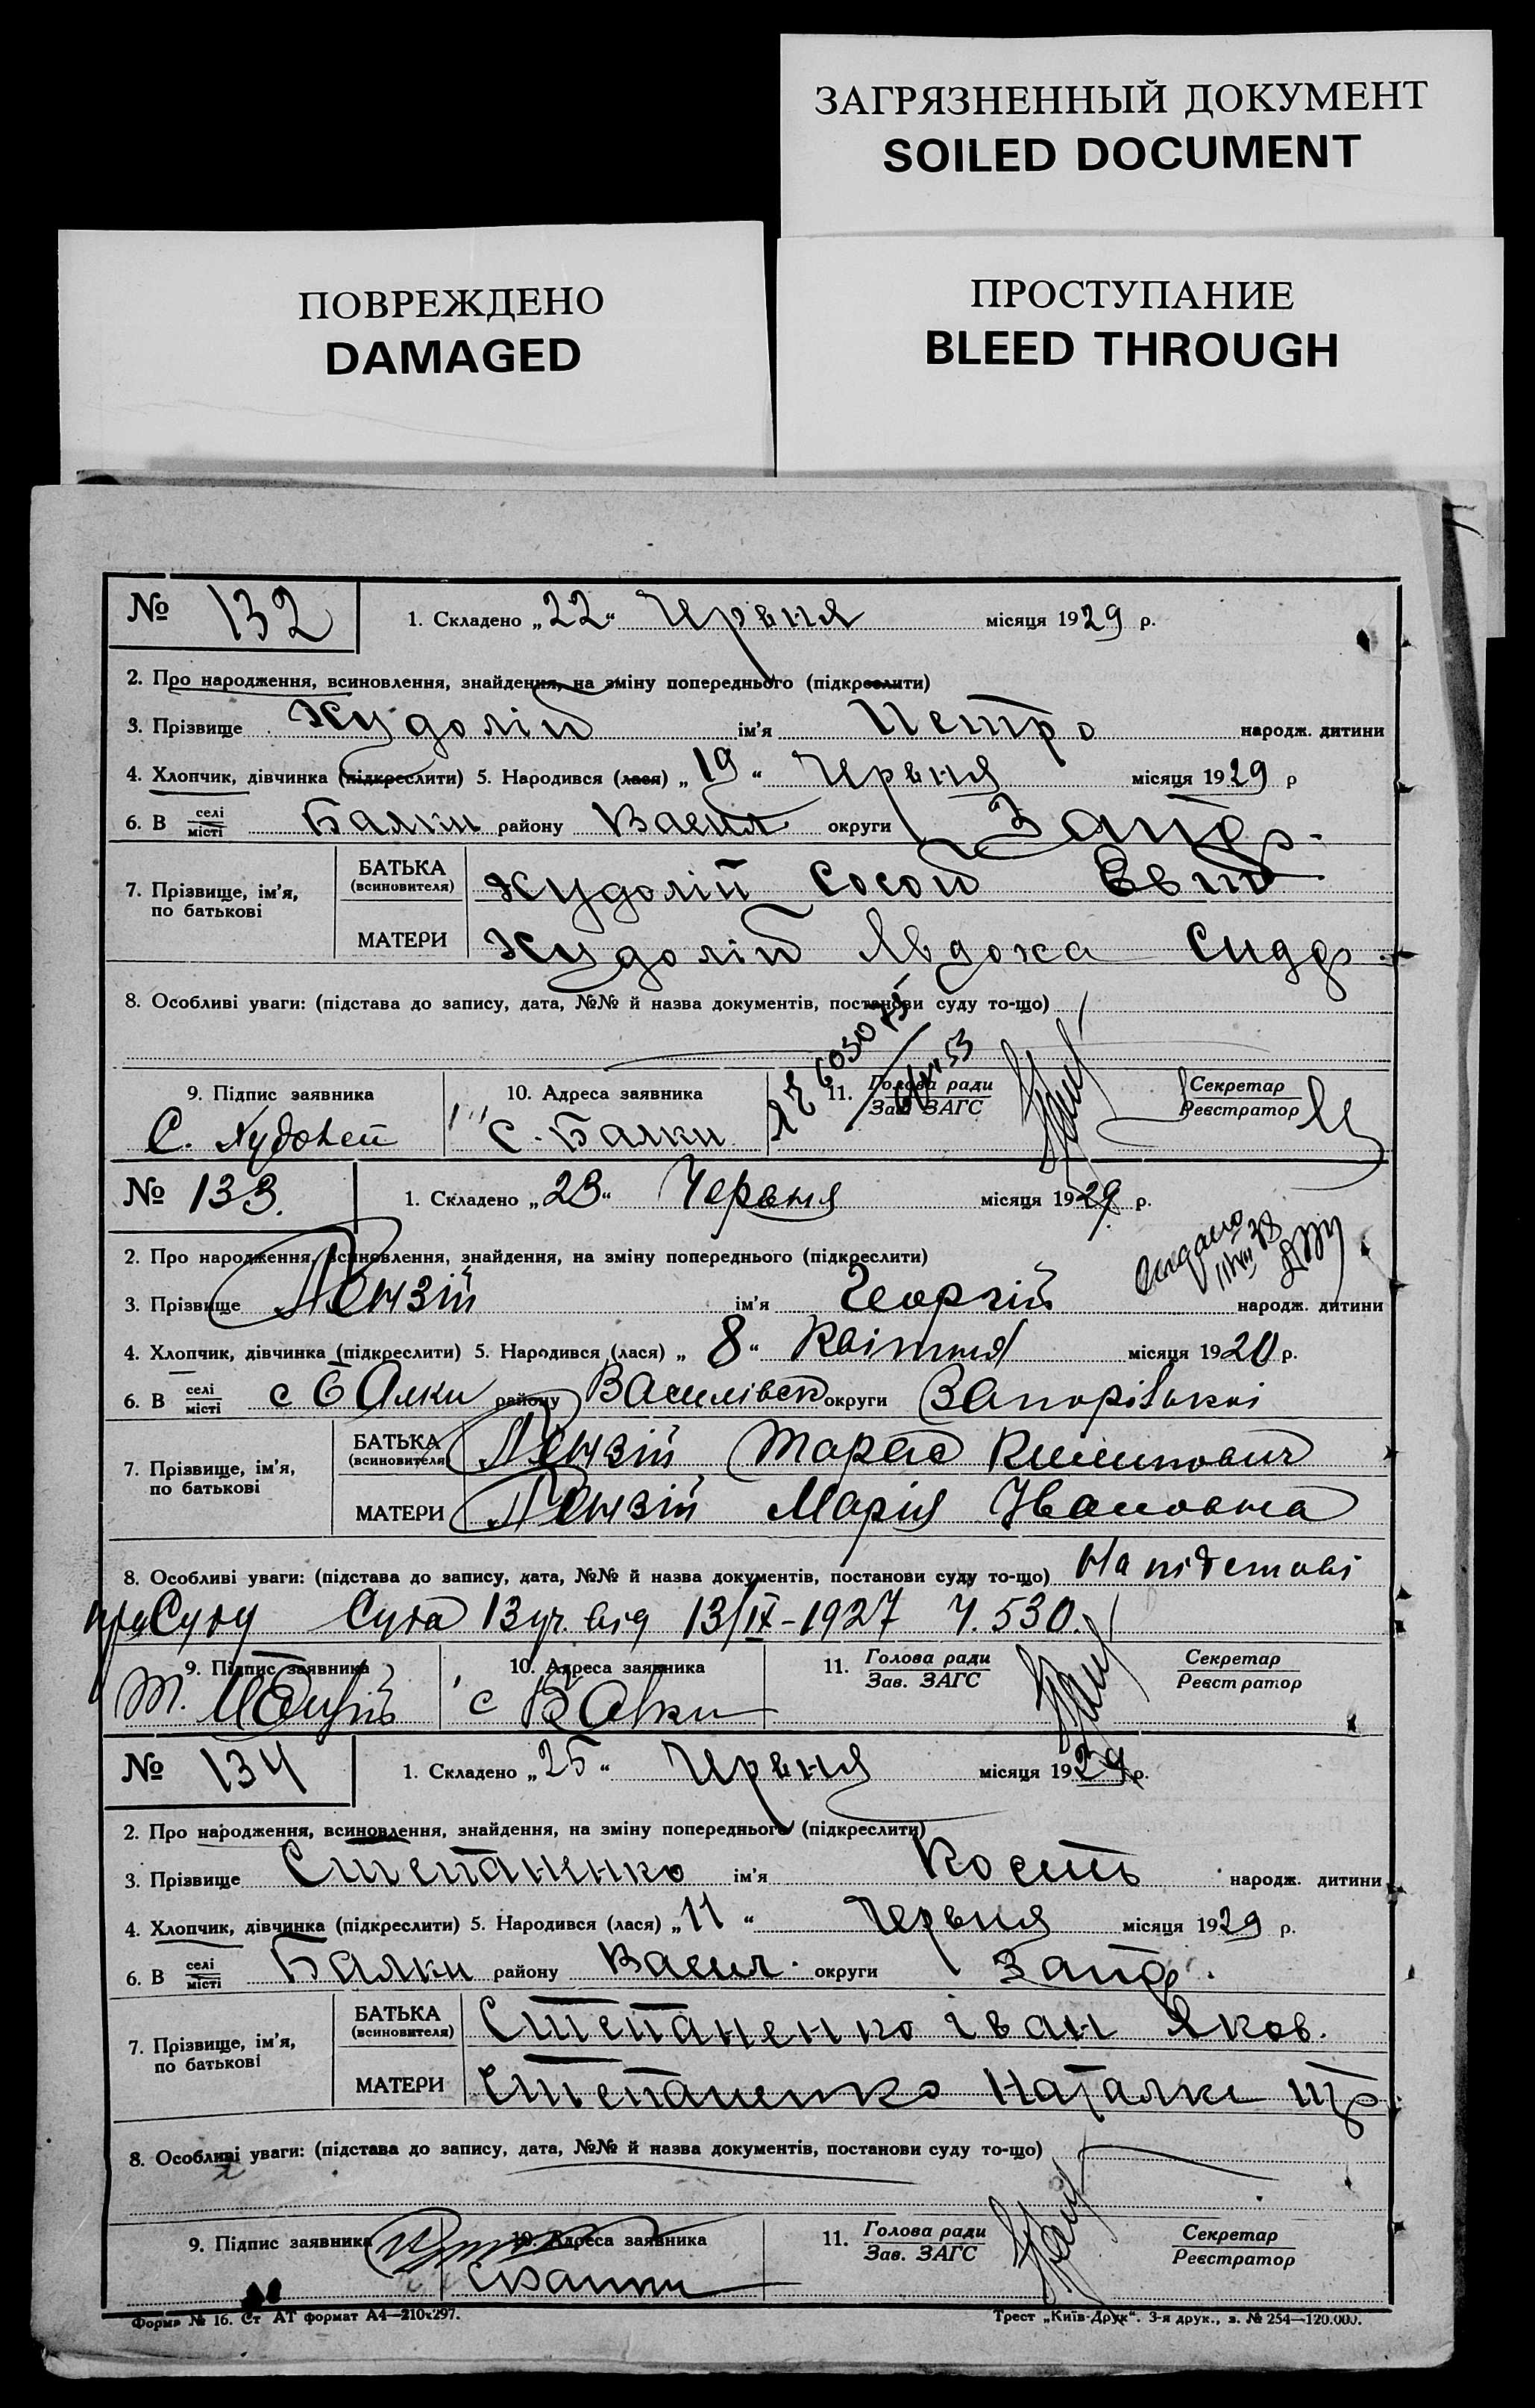 ЗАГРЯЗНЕННЫЙ ДОКУМЕНТ
SOILED DOCUMENT
ПОВРЕЖДЕНО
DAMAGED
ПРОСТУПАНИЕ
BLEED THROUGH
№ 132 1. Складено „22“ Червня місяця 1929 р.
2. Про народження, всиновлення, знайдення, на зміну попереднього (підкреслити)
3. Прізвище Худолій ім'я Петро народж. дитини
4. Хлопчик, дівчинка (підкреслити) 5. Народився (лася) „19“ Червня місяця 1929 р
6. В селі/місті Балки району Васил округи Запор.
7. Прізвище, ім'я, по батькові БАТЬКА (всиновителя) Худолій
МАТЕРИ Худолій Явдоха Сидор.
8. Особливі уваги: (підстава до запису, дата, №№ й назва документів, постанови суду то-що)
9. Підпис заявника 10. Адреса заявника 11. Голова ради/Зав. ЗАГС Секретар/Реєстратор
С. Худолей С. Балки
№ 133. 1. Складено „23“ Червня місяця 1929 р.
2. Про народження, всиновлення, знайдення, на зміну попереднього (підкреслити)
3. Прізвище ім'я Георгій народж. дитини
4. Хлопчик, дівчинка (підкреслити) 5. Народився (лася) „8“ Квітня місяця 1920 р.
6. В селі/місті с Балки району Василівськ округи Запорізькоі
7. Прізвище, ім'я, по батькові БАТЬКА (всиновителя) Тарас
МАТЕРИ Марія Івановна
8. Особливі уваги: (підстава до запису, дата, №№ й назва документів, постанови суду то-що) На підставі
Суда 13 уч. від 13/IX-1927 ч. 530.
9. Підпис заявника 10. Адреса заявника 11. Голова ради/Зав. ЗАГС Секретар/Реєстратор
Т. с Балки
№ 134 1. Складено „25“ Червня місяця 1929 р.
2. Про народження, всиновлення, знайдення, на зміну попереднього (підкреслити)
3. Прізвище Степаненко ім'я Кость народж. дитини
4. Хлопчик, дівчинка (підкреслити) 5. Народився (лася) „11“ Червня місяця 1929 р.
6. В селі/місті Балки району Васил. округи Запор.
7. Прізвище, ім'я, по батькові БАТЬКА (всиновителя) Степаненко Іван Яков.
МАТЕРИ Степаненко Наталка
8. Особливі уваги: (підстава до запису, дата, №№ й назва документів, постанови суду то-що)
9. Підпис заявника 10. Адреса заявника 11. Голова ради/Зав. ЗАГС Секретар/Реєстратор
Форма № 16. Ст АТ формат А4—210х297. Трест „Київ-Друк“. 3-я друк., з. № 254—120.000.